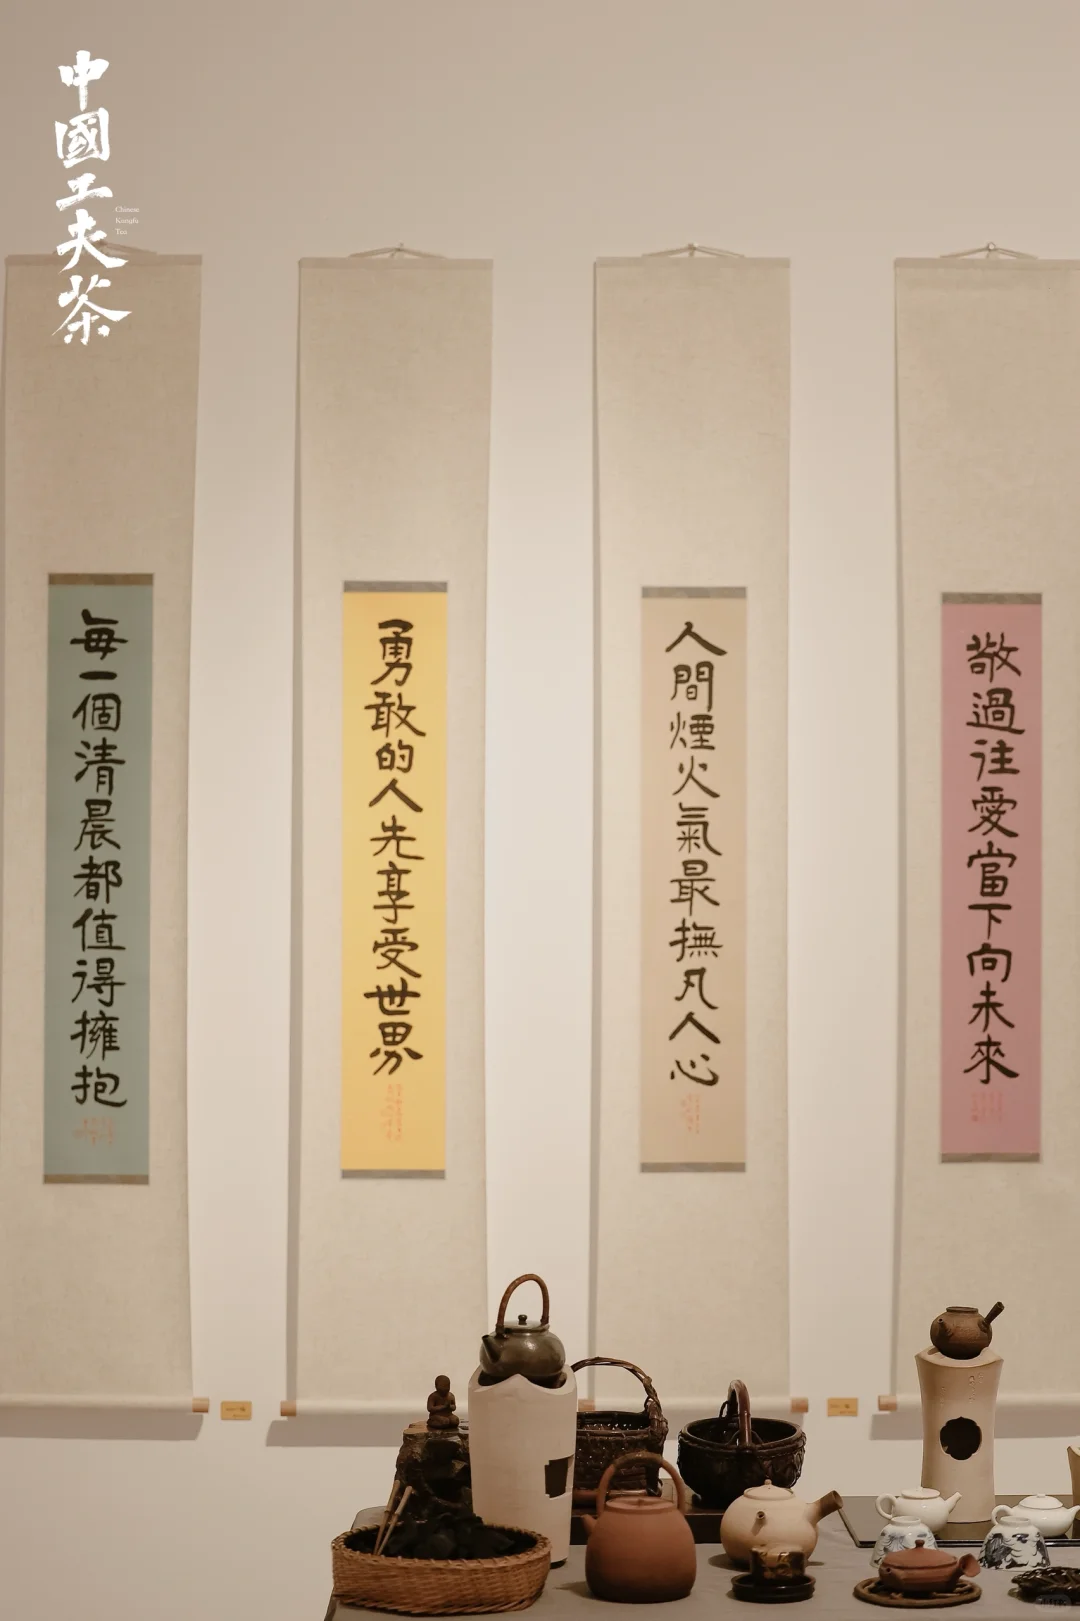 中國工夫茶
Chinese
Kungfu
Tea
每一個清晨都值得擁抱
勇敢的人先享受世界
人間煙火氣最撫凡人心
敬過往愛當下向未來